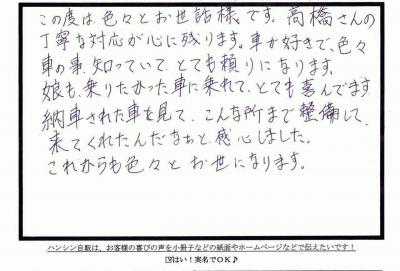 この度は、色々とお世話様です。高橋さんの
丁寧な対応が心に残ります。車が好きで、色々
車の事、知っていて、とても頼りになります。
娘も、乗りたかった車に乗れて、とても喜んでます
納車された車を見て、こんな所まで整備して、
来てくれたんだなぁと、感心しました。
これからも色々と お世になります。
ハンシン自販は、お客様の喜びの声を小冊子などの紙面やホームページなどで伝えたいです！
☑はい！実名でOK♪